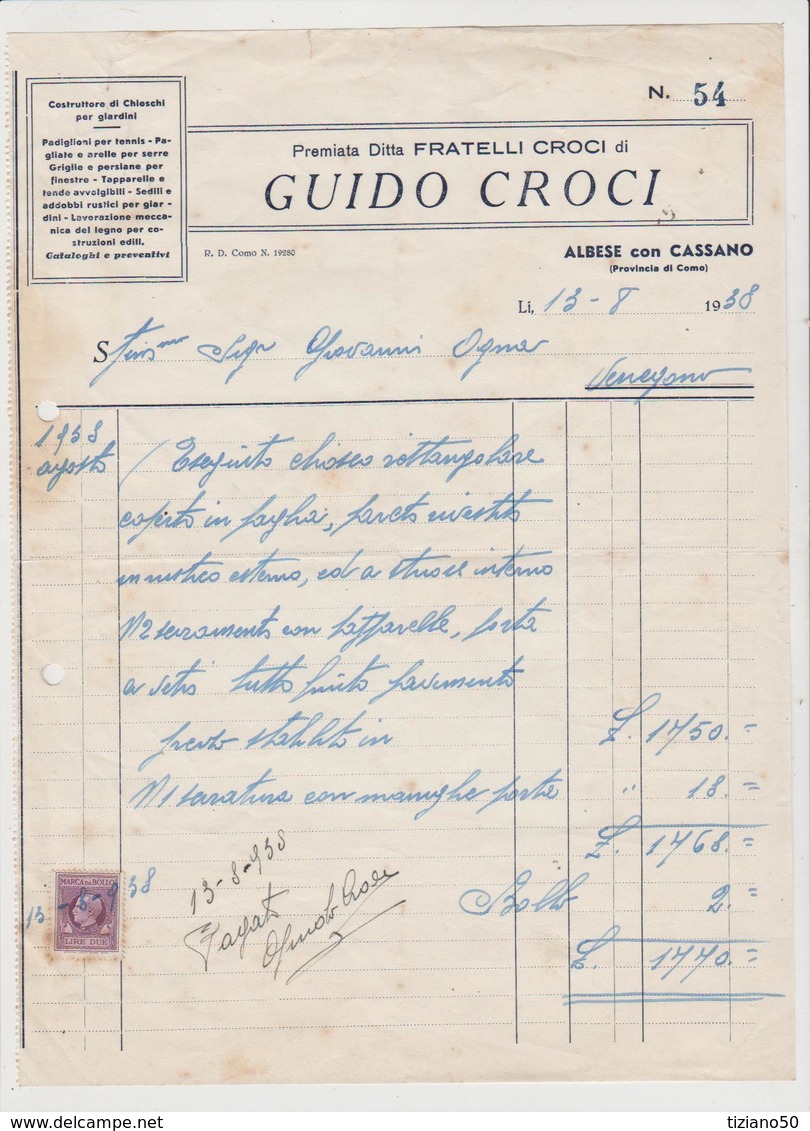 N. 54
Costruttore di Chioschi
per giardini
Padiglioni per tennis - Pa-
gliate e arelle per serre
Griglie e persiane per
finestre - Tapparelle e
tende avvolgibili - Sedili e
addobbi rustici per giar-
dini - Lavorazione mecca-
nica del legno per co-
struzioni edili.
Cataloghi e preventivi
Premiata Ditta FRATELLI CROCI di
GUIDO CROCI
R. D. Como N. 19280
ALBESE con CASSANO
(Provincia di Como)
Li, 13-8 1938
Sigr Giovanni Ogna
Venegono
1938
agosto
Eseguito chiosco rettangolare
coperto in paglia, parete rivestito
in rustico esterno, ed a stuoie interno
N 2 serramento con tapparelle, porta
a vetri tutto finito pavimento
prezzo stabilito in £. 1750.=
N 1 serratura con maniglie porta " 18.=
£. 1768.=
Bollo 2.=
£. 1770.=
13-8-938
Pagato
Croci
MARCA DA BOLLO
LIRE DUE
13-8-938
tiziano50